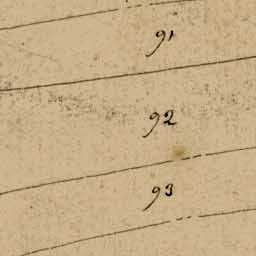 91
92
93